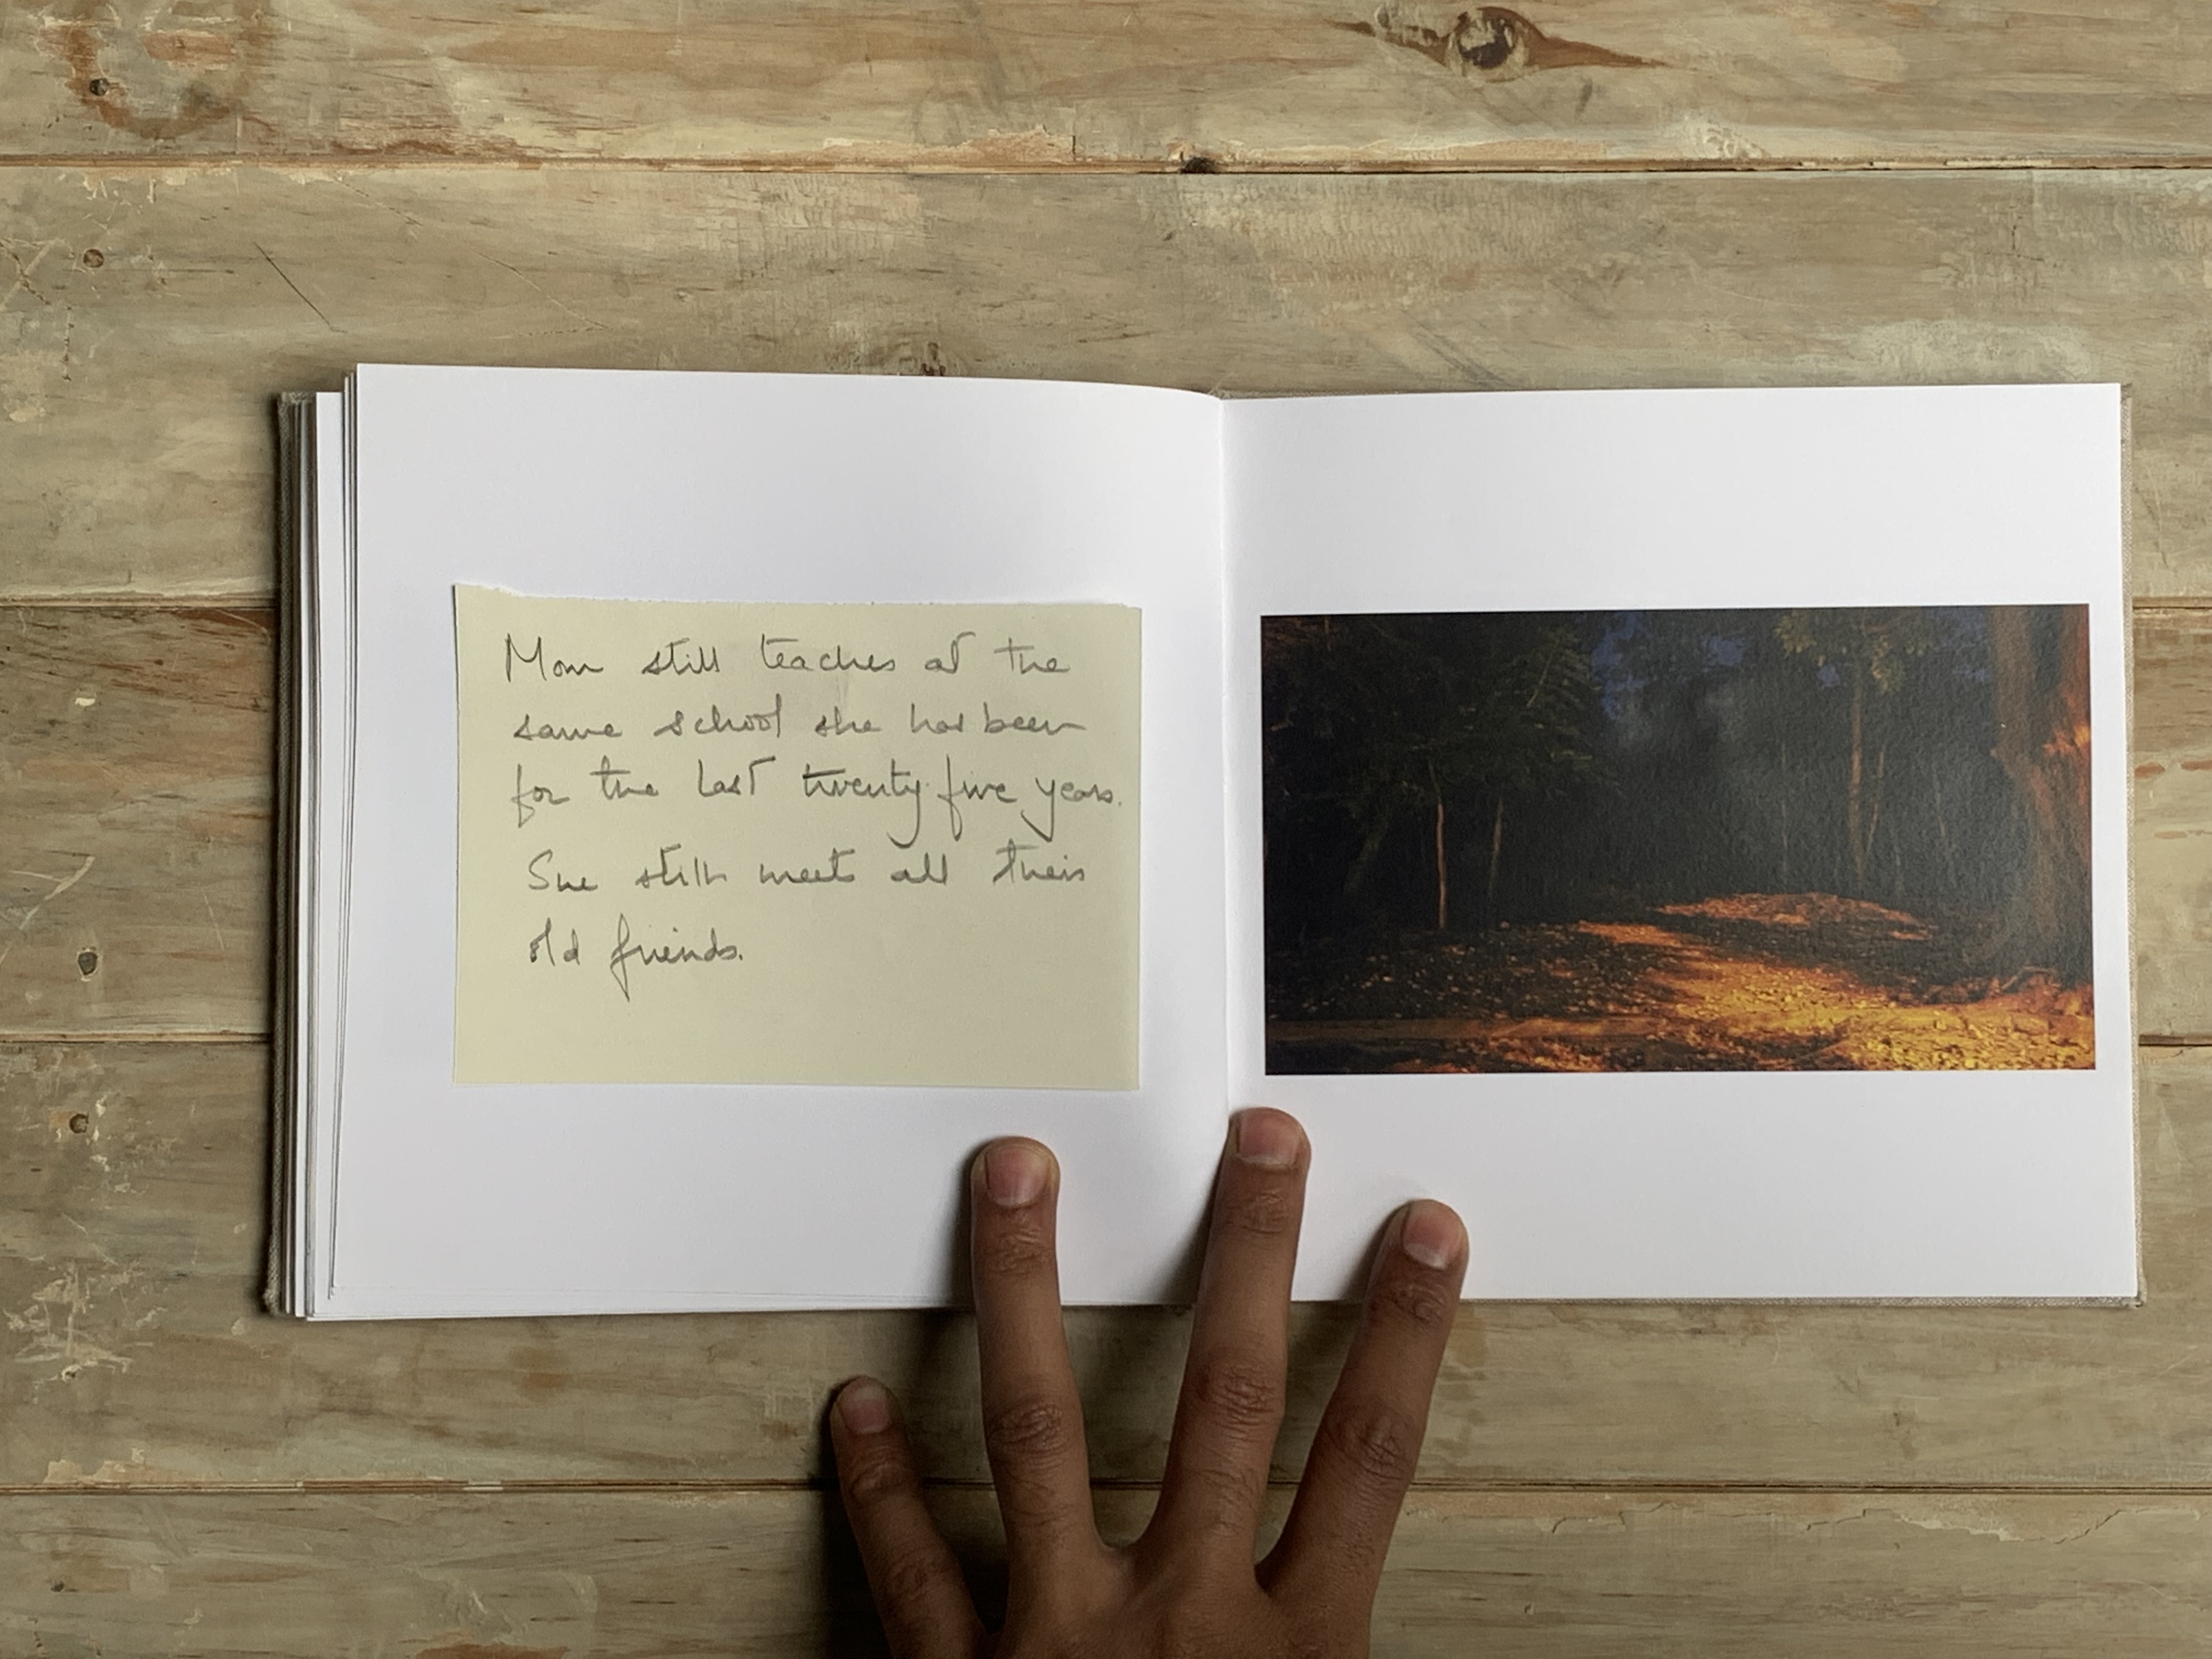 Mom still teaches at the
same school she has been
for the last twenty five years.
She still meets all their
old friends.